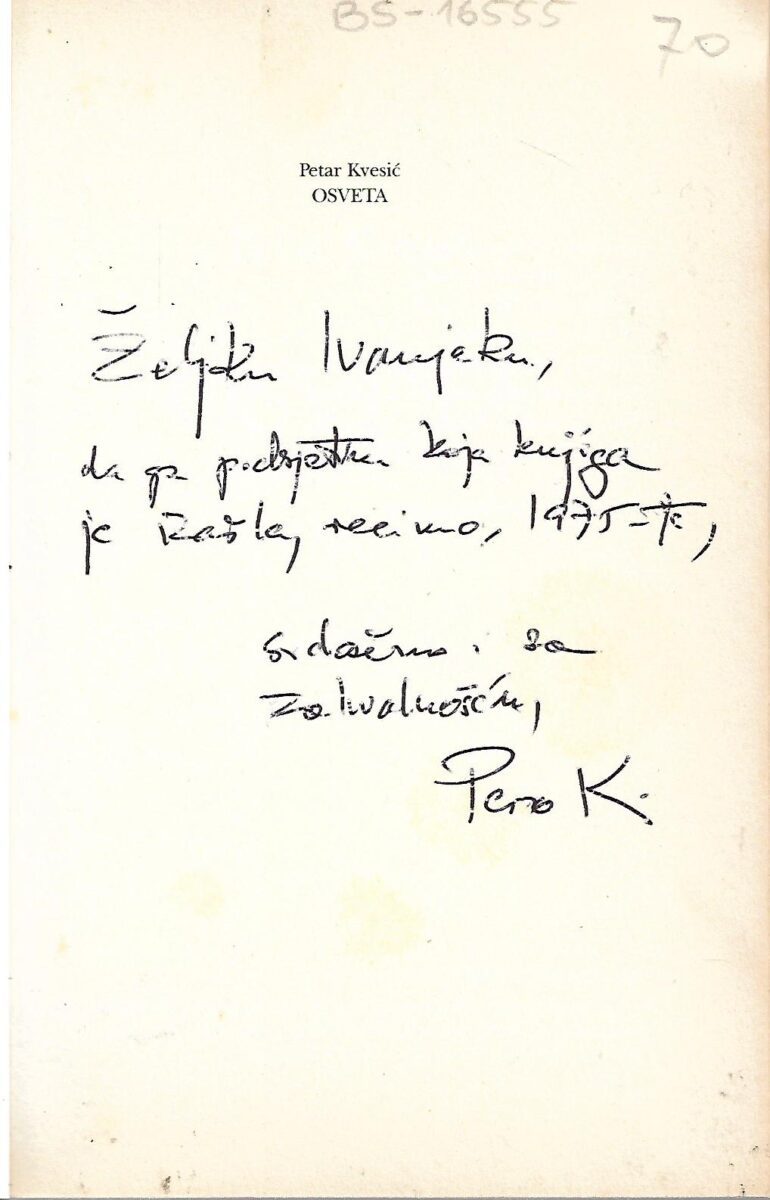 BS-16555
70
Petar Kvesić
OSVETA
Željku Ivanjeku,
da ga podsjetim koja knjiga
je izašla, recimo, 1975-te,
srdačno i sa
zahvalnošću,
Pero K.